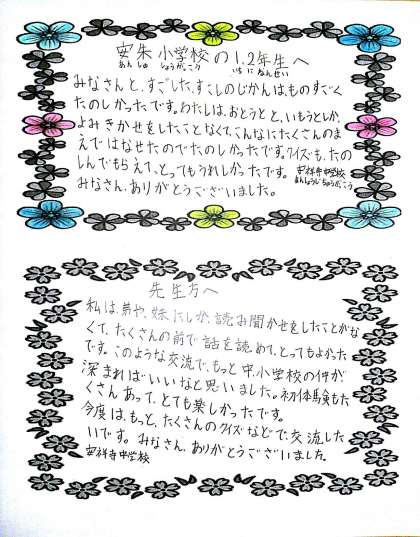 安朱小学校の1.2年生へ
あんしゅ しょうがっこう いちにねんせい
みなさんと、すごした、すこしのじかんは、ものすごく
たのしかったです。わたしは、おとうとと、いもうとしか、
よみきかせをしたことなくて、こんなにたくさんのま
えではなせたのでたのしかったです。クイズも、たの
しんでもらえて、とってもうれしかったです。 安祥寺中学校
あんしょうじちゅうがっこう
みなさん、ありがとうございました。
先生方へ
私は、弟や、妹にしか、読お聞かせをしたことがな
くて、たくさんの前で話を読めて、とってもよかった
です。このような交流で、もっと中小学校の仲が、
深まればいいなと思いました。ネタ体験もた
くさんあって、とても楽しかったです。
今度は、もっと、たくさんのクイズなどで、交流した
いです。みなさん、ありがとうございました。
安祥寺中学校